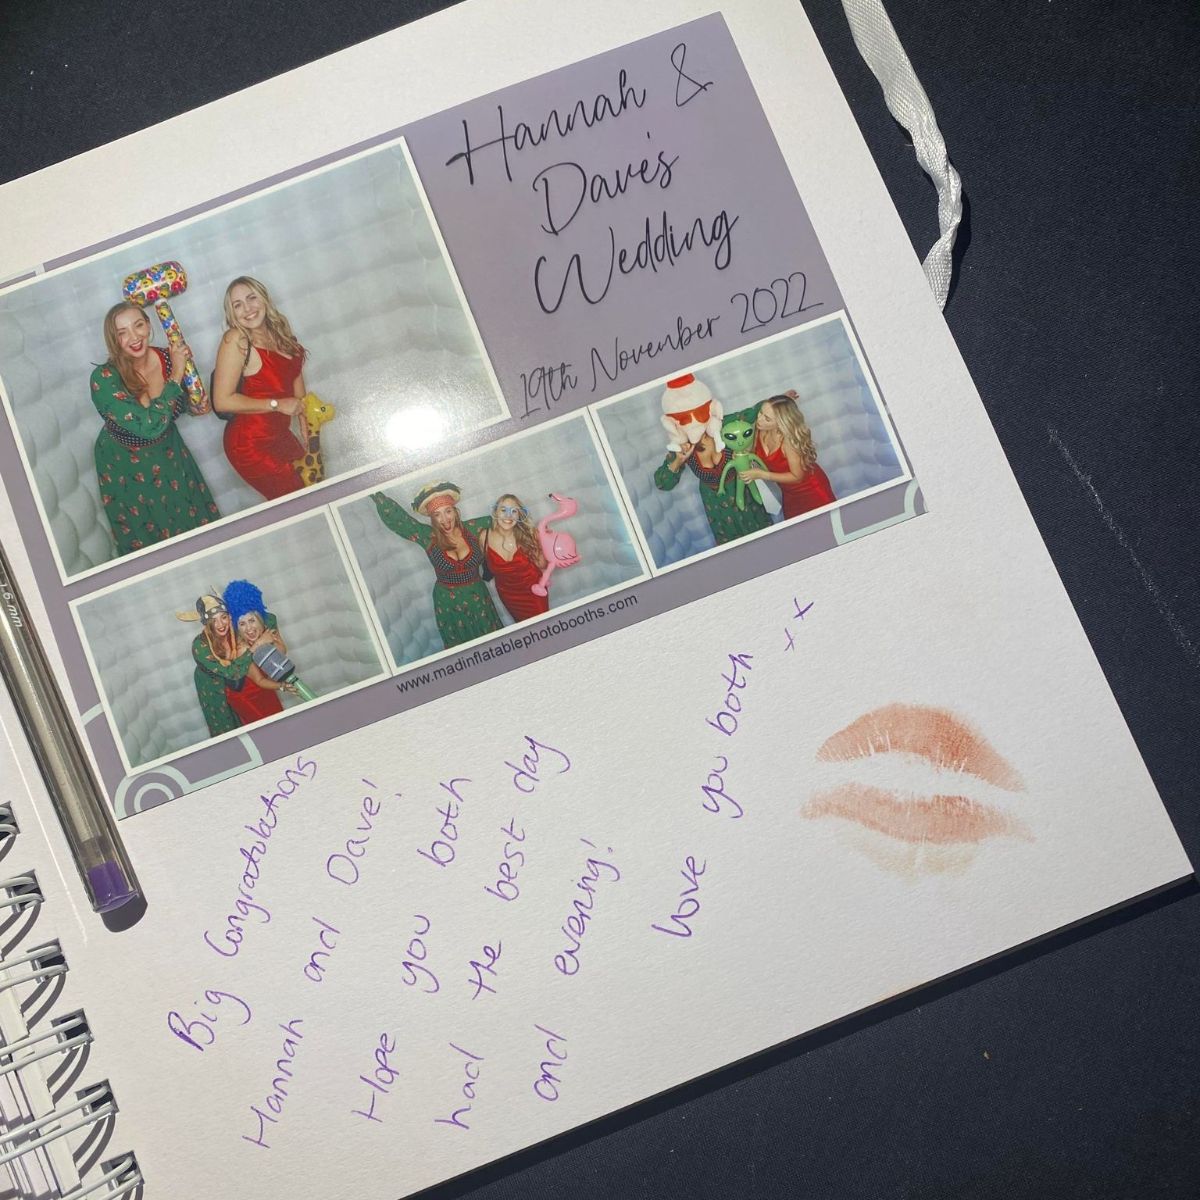 Hannah &
Dave's
Wedding
19th November 2022
www.madinflatablephotobooths.com
Big Congratulations
Hannah and Dave!
Hope you both
had the best day
and evening!
Love you both
x x
1.6 mm